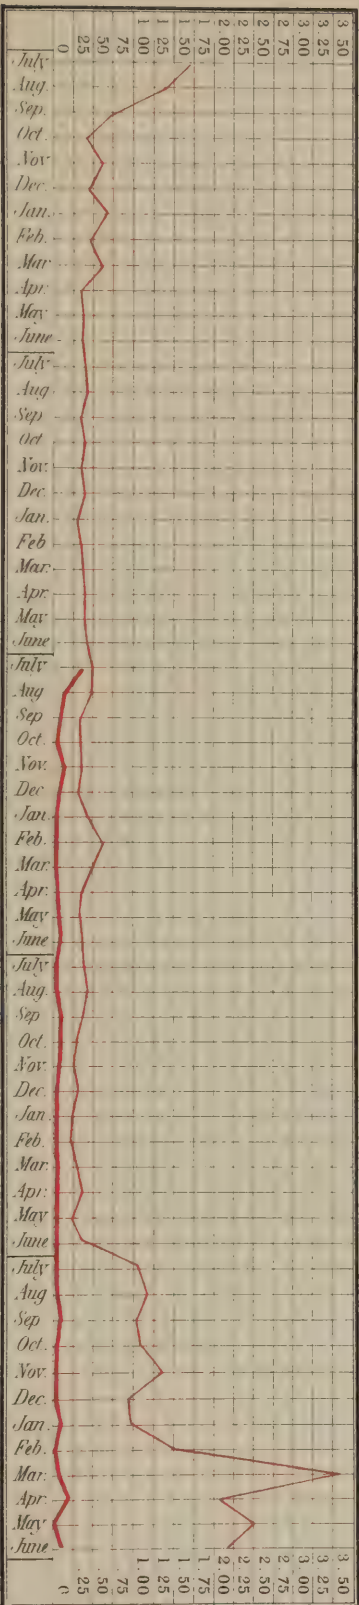 0 25 50 75 1 00 1 25 1 50 1 75 2.00 2.25 2.50 2.75 3.00 3.25 3.50
July
Aug.
Sep.
Oct.
Nov
Dec.
Jan.
Feb.
Mar
Apr.
May
June
July
Aug
Sep
Oct
Nov.
Dec.
Jan.
Feb
Mar.
Apr.
May
June
July
Aug
Sep
Oct.
Nov.
Dec
Jan.
Feb.
Mar.
Apr.
May
June
July
Aug.
Sep
Oct.
Nov.
Dec.
Jan
Feb.
Mar.
Apr.
May
June
July
Aug
Sep
Oct.
Nov.
Dec.
Jan.
Feb.
Mar.
Apr.
May
June
0 .25 .50 .75 1 00 1 25 1 50 1 75 2 00 2 25 2 50 2 75 3.00 3.25 3 50